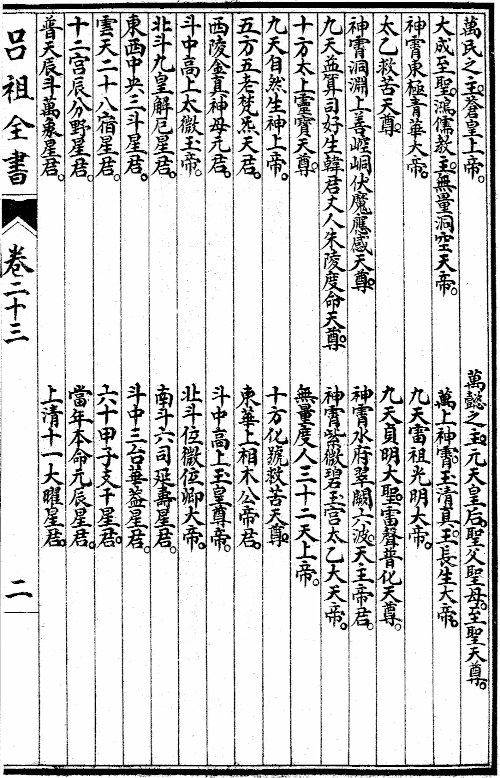 萬民之主。蒼皇上帝。　萬懿之主。元天皇后。聖父聖母。至聖天尊。
大成至聖。鴻儒教主。無量洞空天帝。　萬上神霄。玉清真王。長生大帝。
神霄東極青華大帝。　九天雷祖光明大帝。
太乙救苦天尊。　九天貞明大聖。雷聲普化天尊。
神霄洞淵上善崆峒伏魔應感天尊。　神霄水府翠闕六波天主帝君。
九天益算司好生韓君丈人朱陵度命天尊。　神霄紫微碧玉宮太乙大天帝。
十方太上靈寶天尊。　無量度人三十二天上帝。
九天自然生神上帝。　十方化號救苦天尊。
五方五老梵炁天君。　東華上相木公帝君。
西陵金真神母元君。　斗中高上玉皇尊帝。
斗中高上太微玉帝。　北斗位微位卿大帝。
北斗九皇解厄星君。　南斗六司延壽星君。
東西中央三斗星君。　斗中三台華蓋星君。
雲天二十八宿星君。　六十甲子支干星君。
十二宮辰分野星君。　當年本命元辰星君。
普天辰斗萬象星君。　上清十一大曜星君。
呂祖全書　卷二十三　二